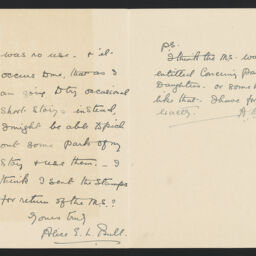 was no use. & it
occurs to me, that as I
am going to try occasional
short story instead,
I might be able to pick
out some parts of my
story & use them. - I
think I sent the stamps
for return of the M.S.?
Yours truly
Alice E. L. Bull.
P.S.
I think the M.S. was
entitled Concerning
Daughters - or some
like that. I have for